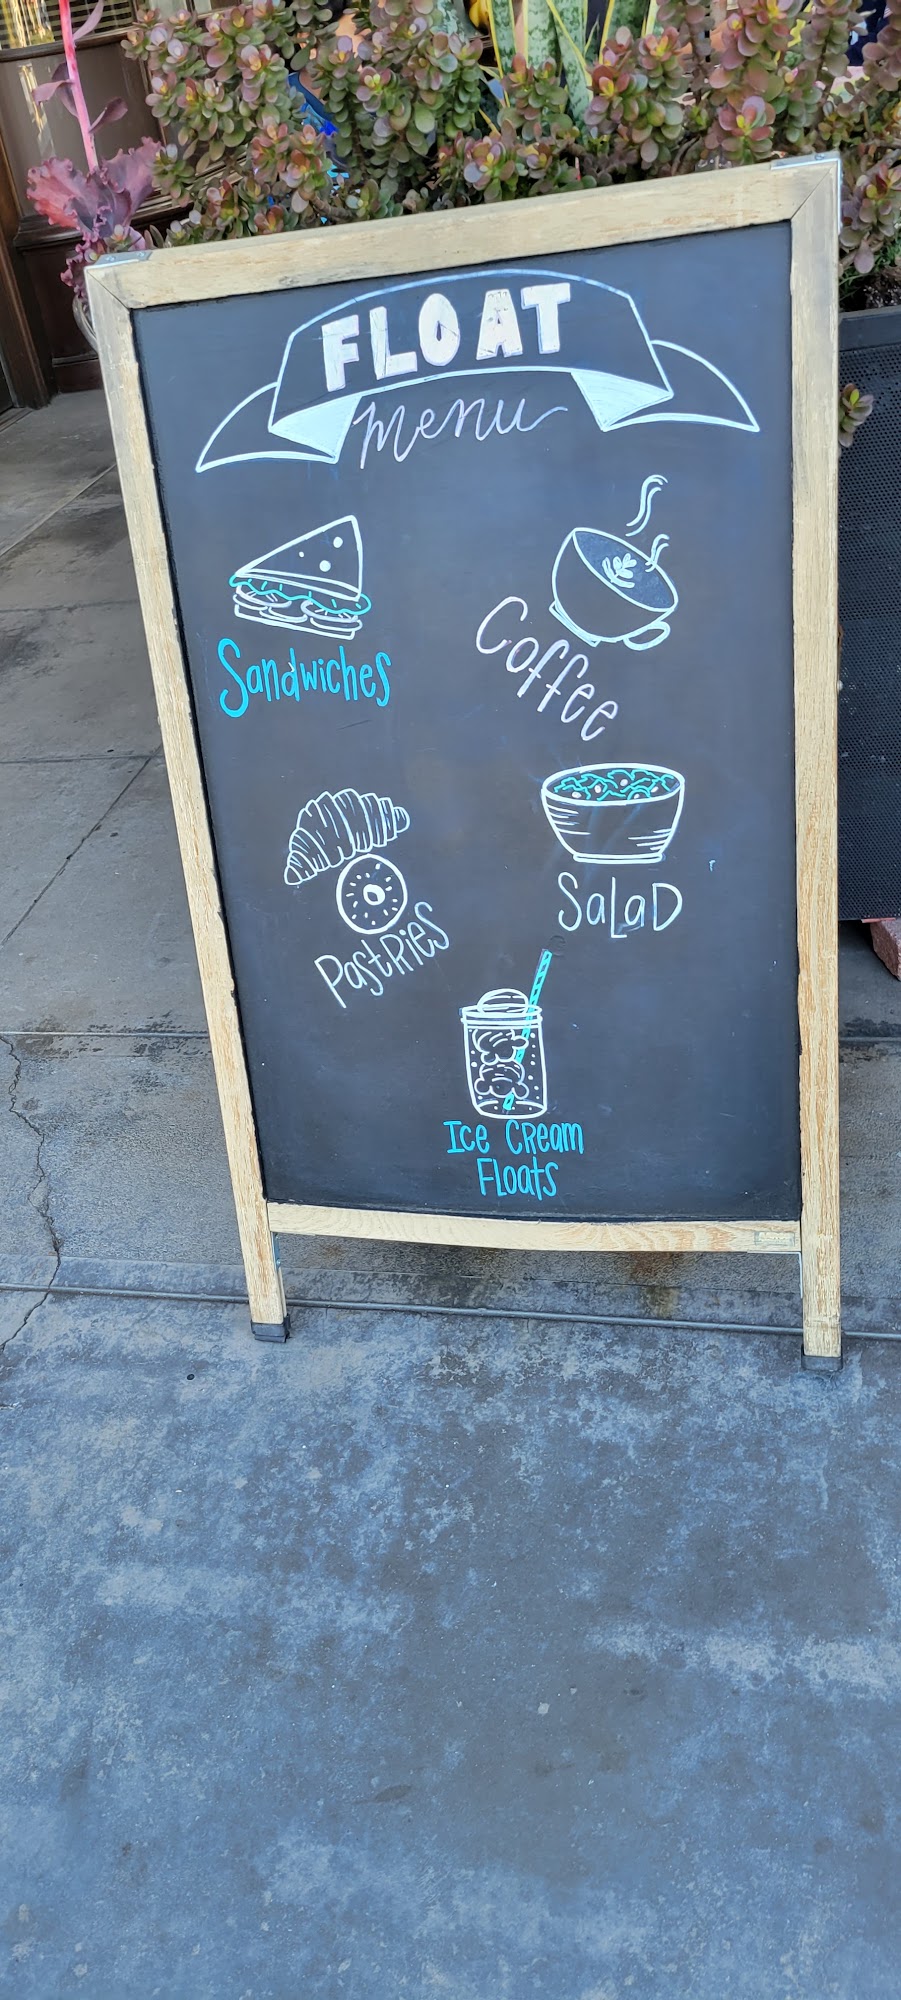 FLOAT
Menu
Sandwiches
Coffee
Pastries
Salad
Ice Cream
Floats